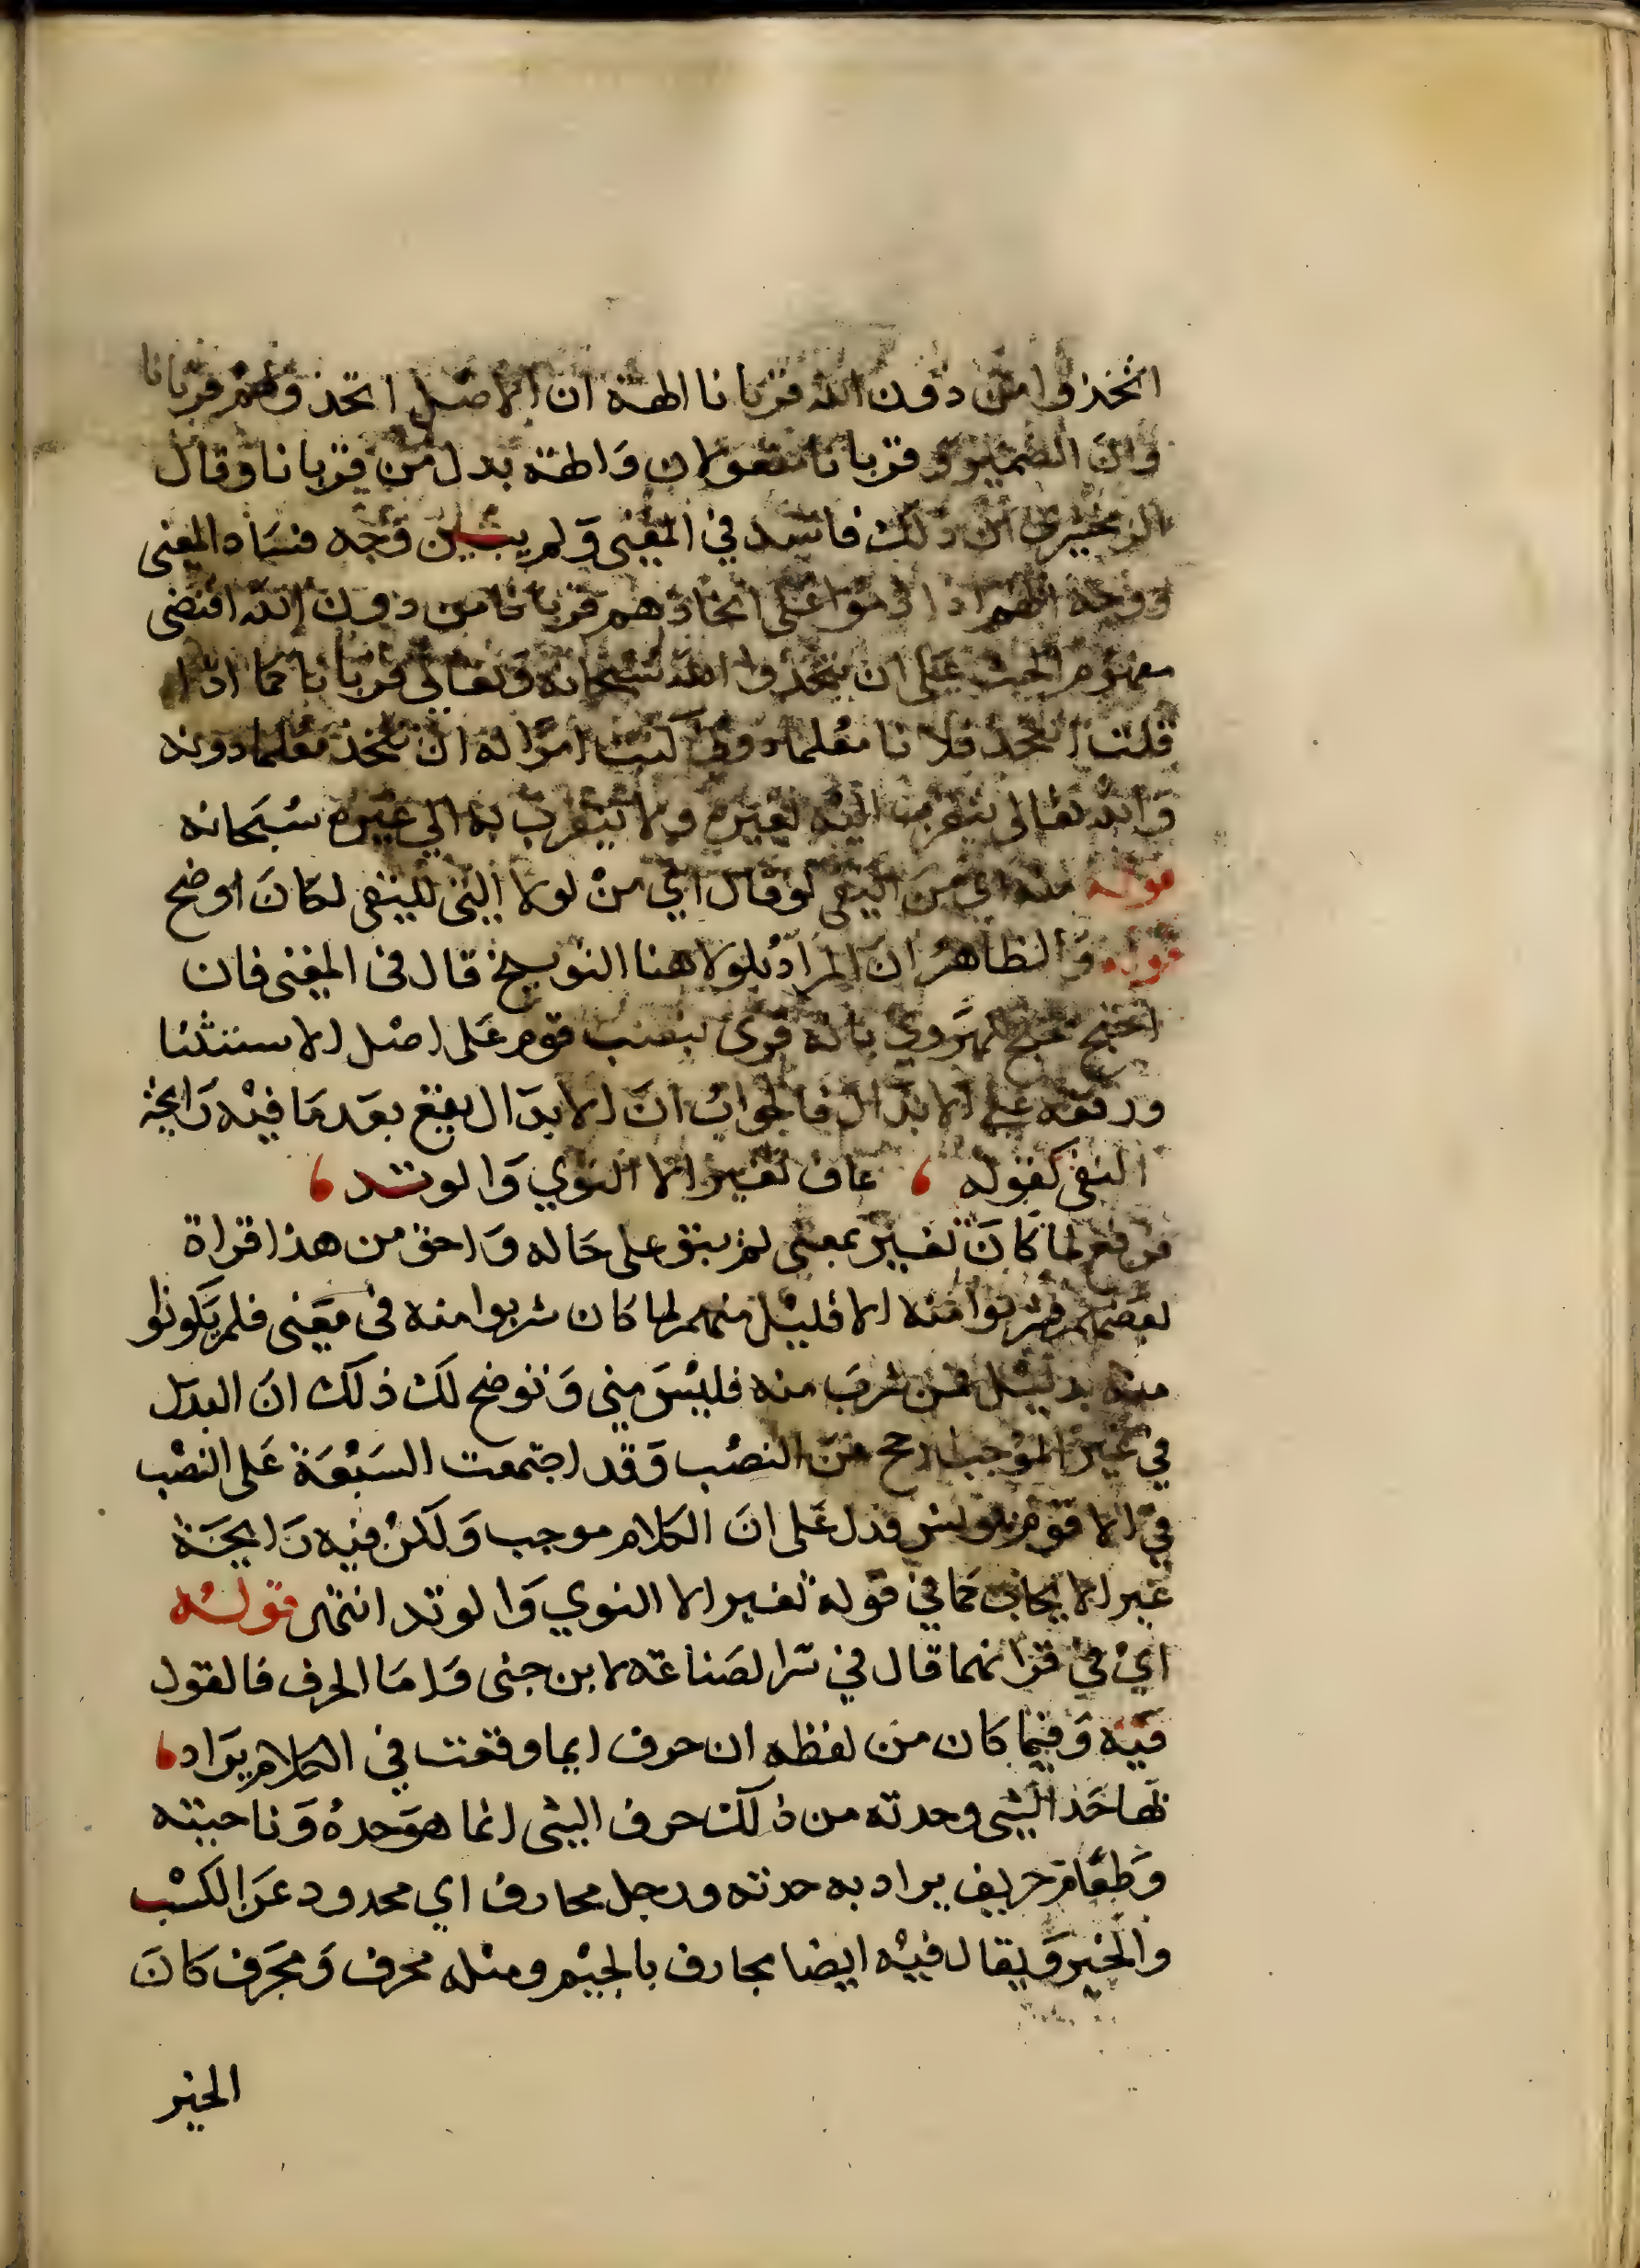 اتخذوا من دون الله قربانا الهة ان الاصل اتخذوهم قربانا
وان الضمير وقربانا مفعولان والهة بدل من قربانا وقال
الزمخشري ان ذلك فاسد في المعنى ولم يبين وجه فساد المعنى
ووجهه انهم اذا ذموا على اتخاذهم قربانا من دون الله اقتضى
مفهومه الحث على ان يتخذوا الله سبحانه وتعالى قربانا كما اذا
قلت اتتخذ فلانا معلما دوني كنت امرا له ان يتخذ معلما دونه
والله تعالى يتقرب اليه بغيره ولا يتقرب به الي غيره سبحانه
قوله منه اي من النفي لو قال اي من لولا التي للنفى لكان اوضح
قوله والظاهر ان المراد بلولا هنا التوبيخ قال فى المغنى فان
احتج محتج للهروي بانه قرى بنصب قوم على اصل الاستثنا
ورفعه على الابدال فالجواب ان الابدال يقع بعد ما فيه رايحة
النفى كقوله ، عاف تغير الا النوي والوتد ،
فرفع لما كان تغير بمعنى لم يبق على حاله واحق من هذا قراة
بعضهم فشربوا منه الا قليل منهم لما كان شربوا منه فى معنى فلم يكونوا
منه بدليل فمن شرب منه فليس مني ونوضح لك ذلك ان البدل
في غير الموجب ارجح من النصب وقد اجتمعت السبعة على النصب
في الا قوم يونس فدل على ان الكلام موجب ولكن فيه رايحة
غير الايجاب كما في قوله تغير الا النوي والوتد انتهى قوله
اي في قرانهما قال في سر الصناعة لابن جنى واما الحرف فالقول
فيه وفيما كان من لفظه ان حرف ايما وقعت في الكلام يراد ،
بها حد الشي وحدته من ذلك حرف الشي انما هو حده وناحيته
وطعام حريف يراد به حدته ورجل محارف اي محدود عن الكسب
والخير ويقال فيه ايضا مجارف بالجيم ومثله محرف ومجرف كان
الخير